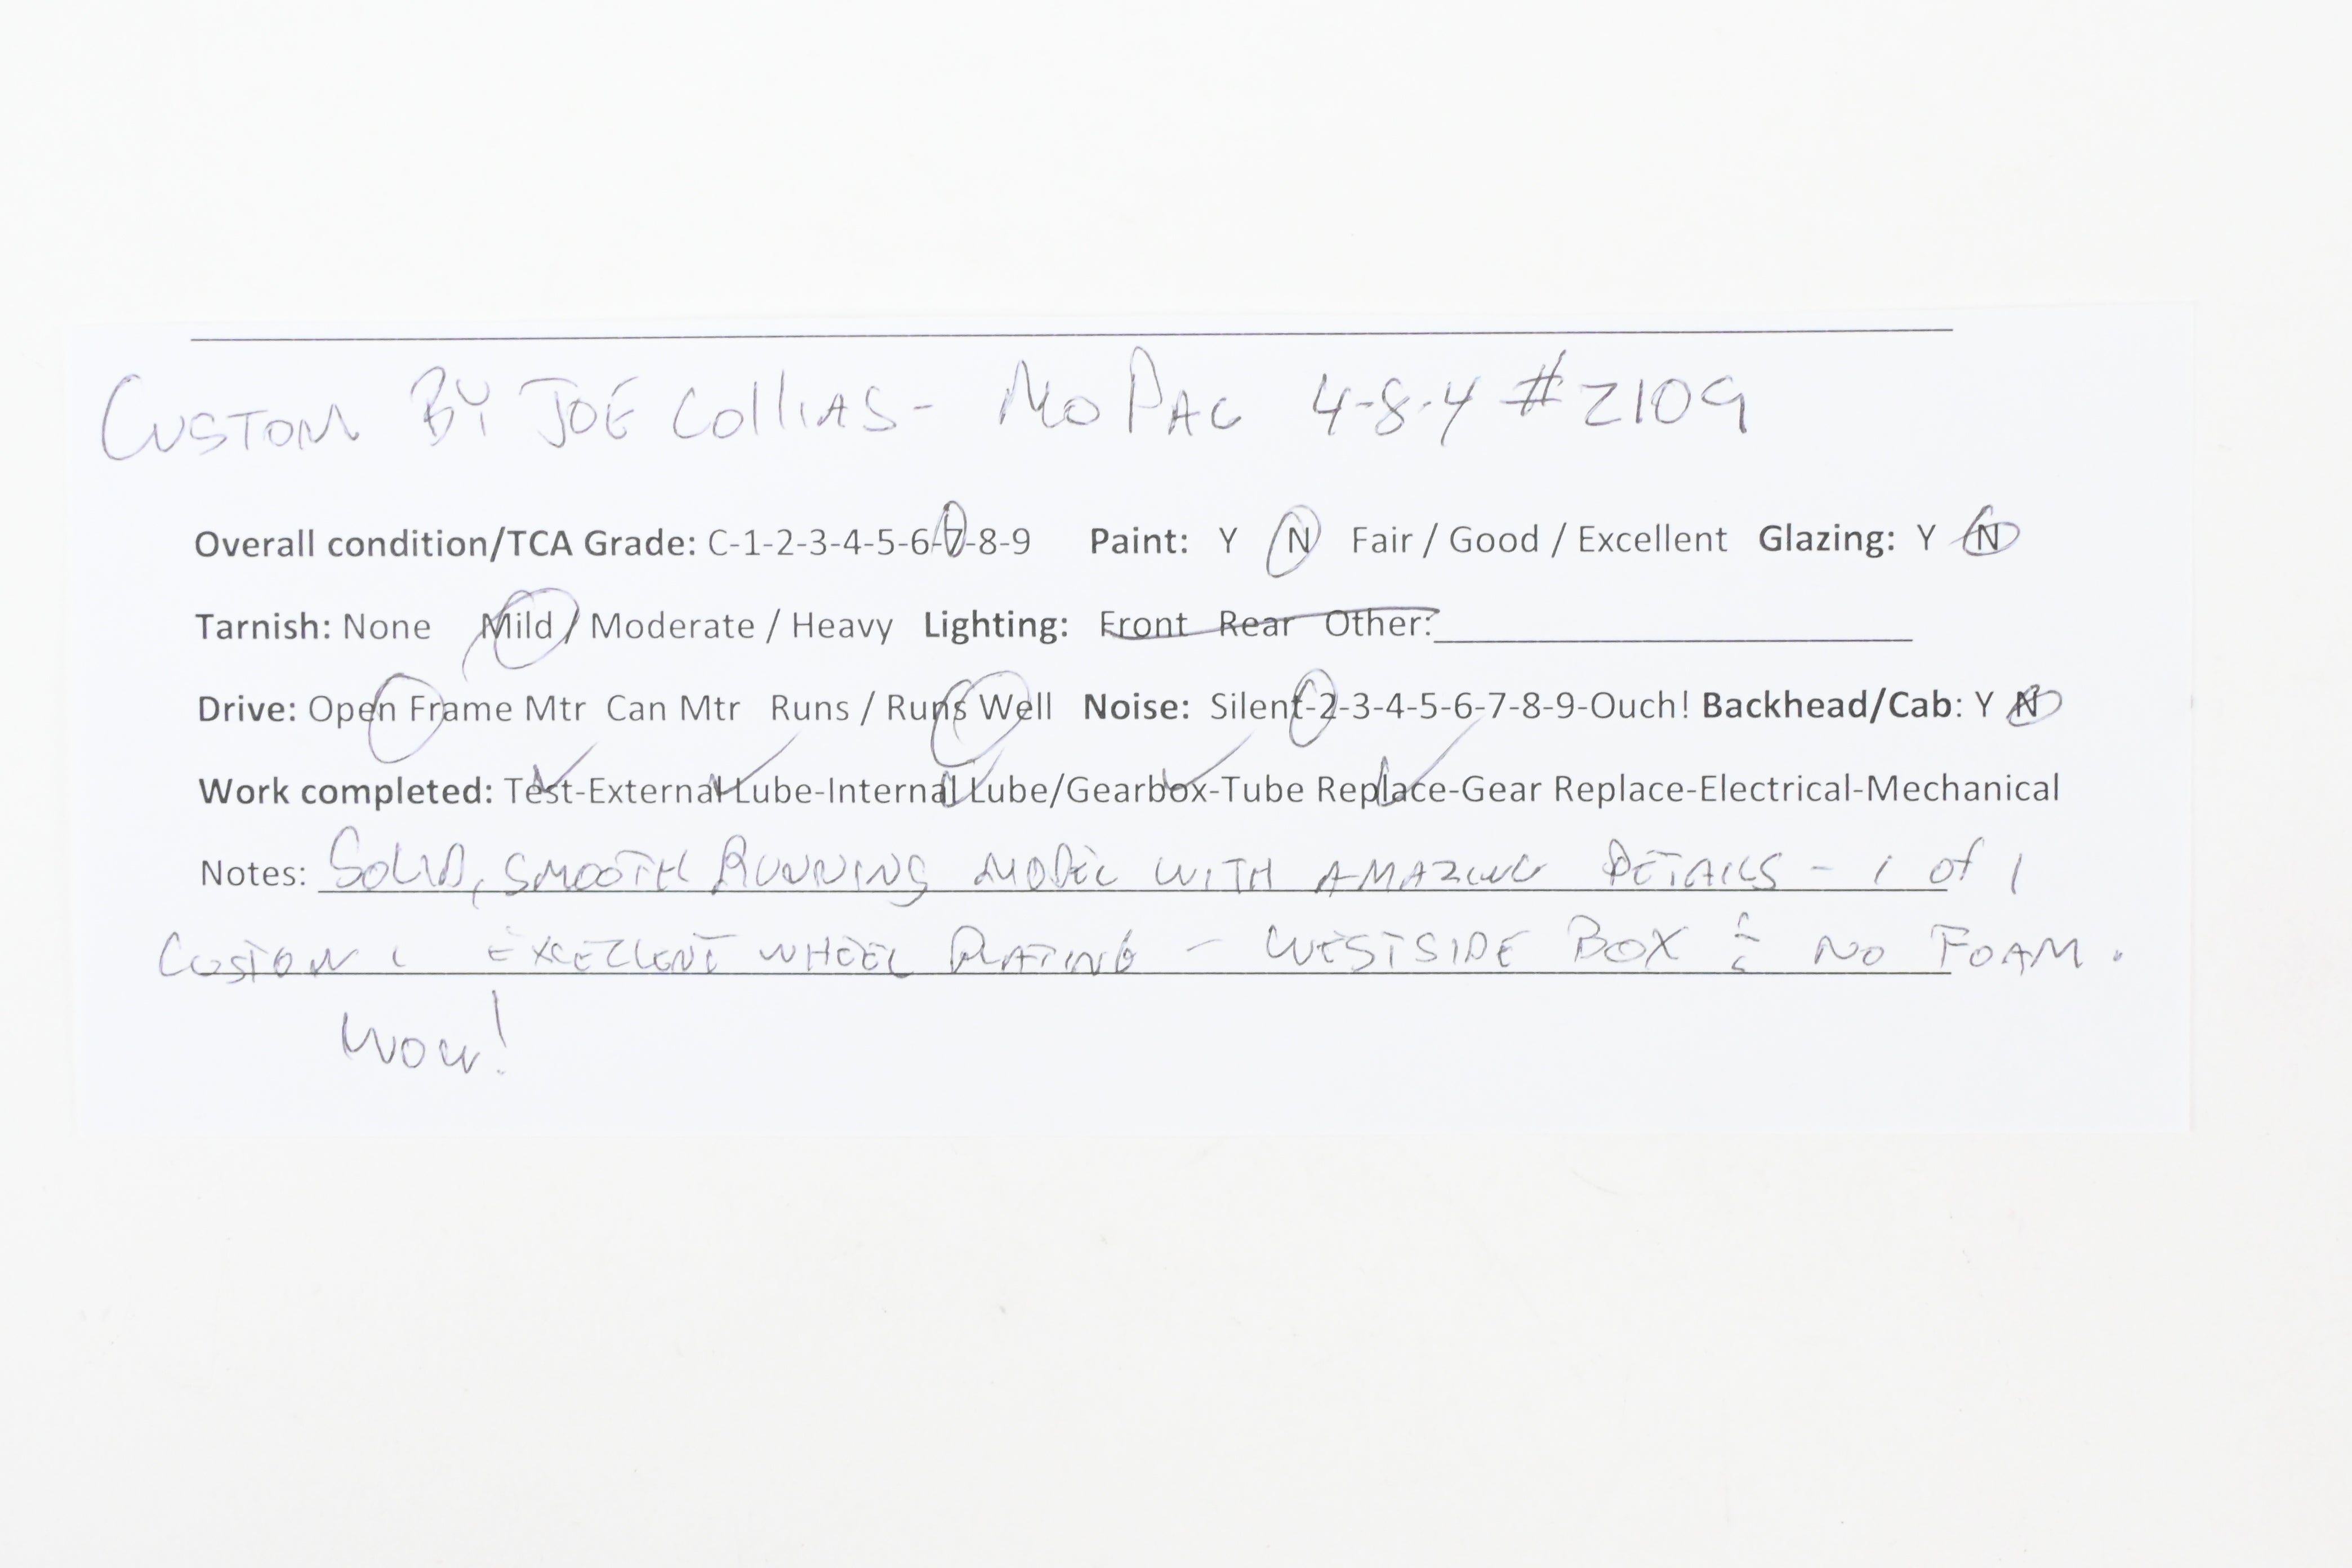 CUSTOM BY JOE COLLIAS - MO PAC 4-8-4 #2109
Overall condition/TCA Grade: C-1-2-3-4-5-6-7-8-9 Paint: Y N Fair / Good / Excellent Glazing: Y N
Tarnish: None Mild / Moderate / Heavy Lighting: Front Rear Other:
Drive: Open Frame Mtr Can Mtr Runs / Runs Well Noise: Silent-2-3-4-5-6-7-8-9-Ouch! Backhead/Cab: Y N
Work completed: Test-External Lube-Internal Lube/Gearbox-Tube Replace-Gear Replace-Electrical-Mechanical
Notes: SOLID, SMOOTH RUNNING MODEL WITH AMAZING DETAILS - 1 of 1
CUSTOM. EXCELLENT WHEEL PLATING - WESTSIDE BOX & NO FOAM.
WOW!